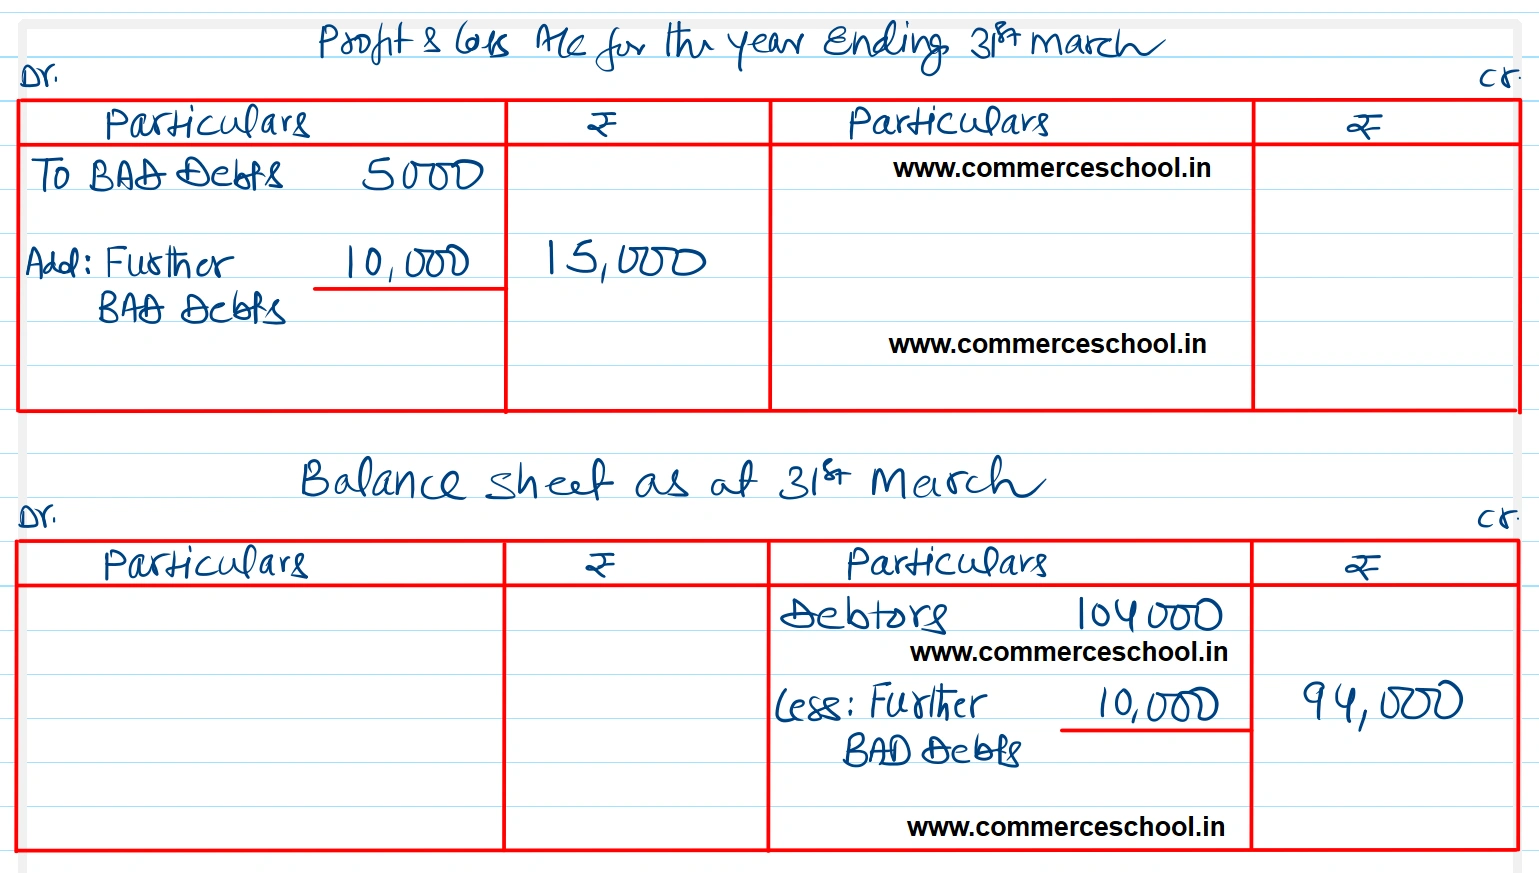 Profit & Loss A/c for the year Ending 31st March
Dr. Cr.
Particulars ₹ Particulars ₹
To BAD Debts 5000 www.commerceschool.in
Add: Further 10,000 15,000
BAD Debts
www.commerceschool.in
Balance sheet as at 31st March
Dr. Cr.
Particulars ₹ Particulars ₹
Debtors 104000
www.commerceschool.in
Less: Further 10,000 94,000
BAD Debts
www.commerceschool.in